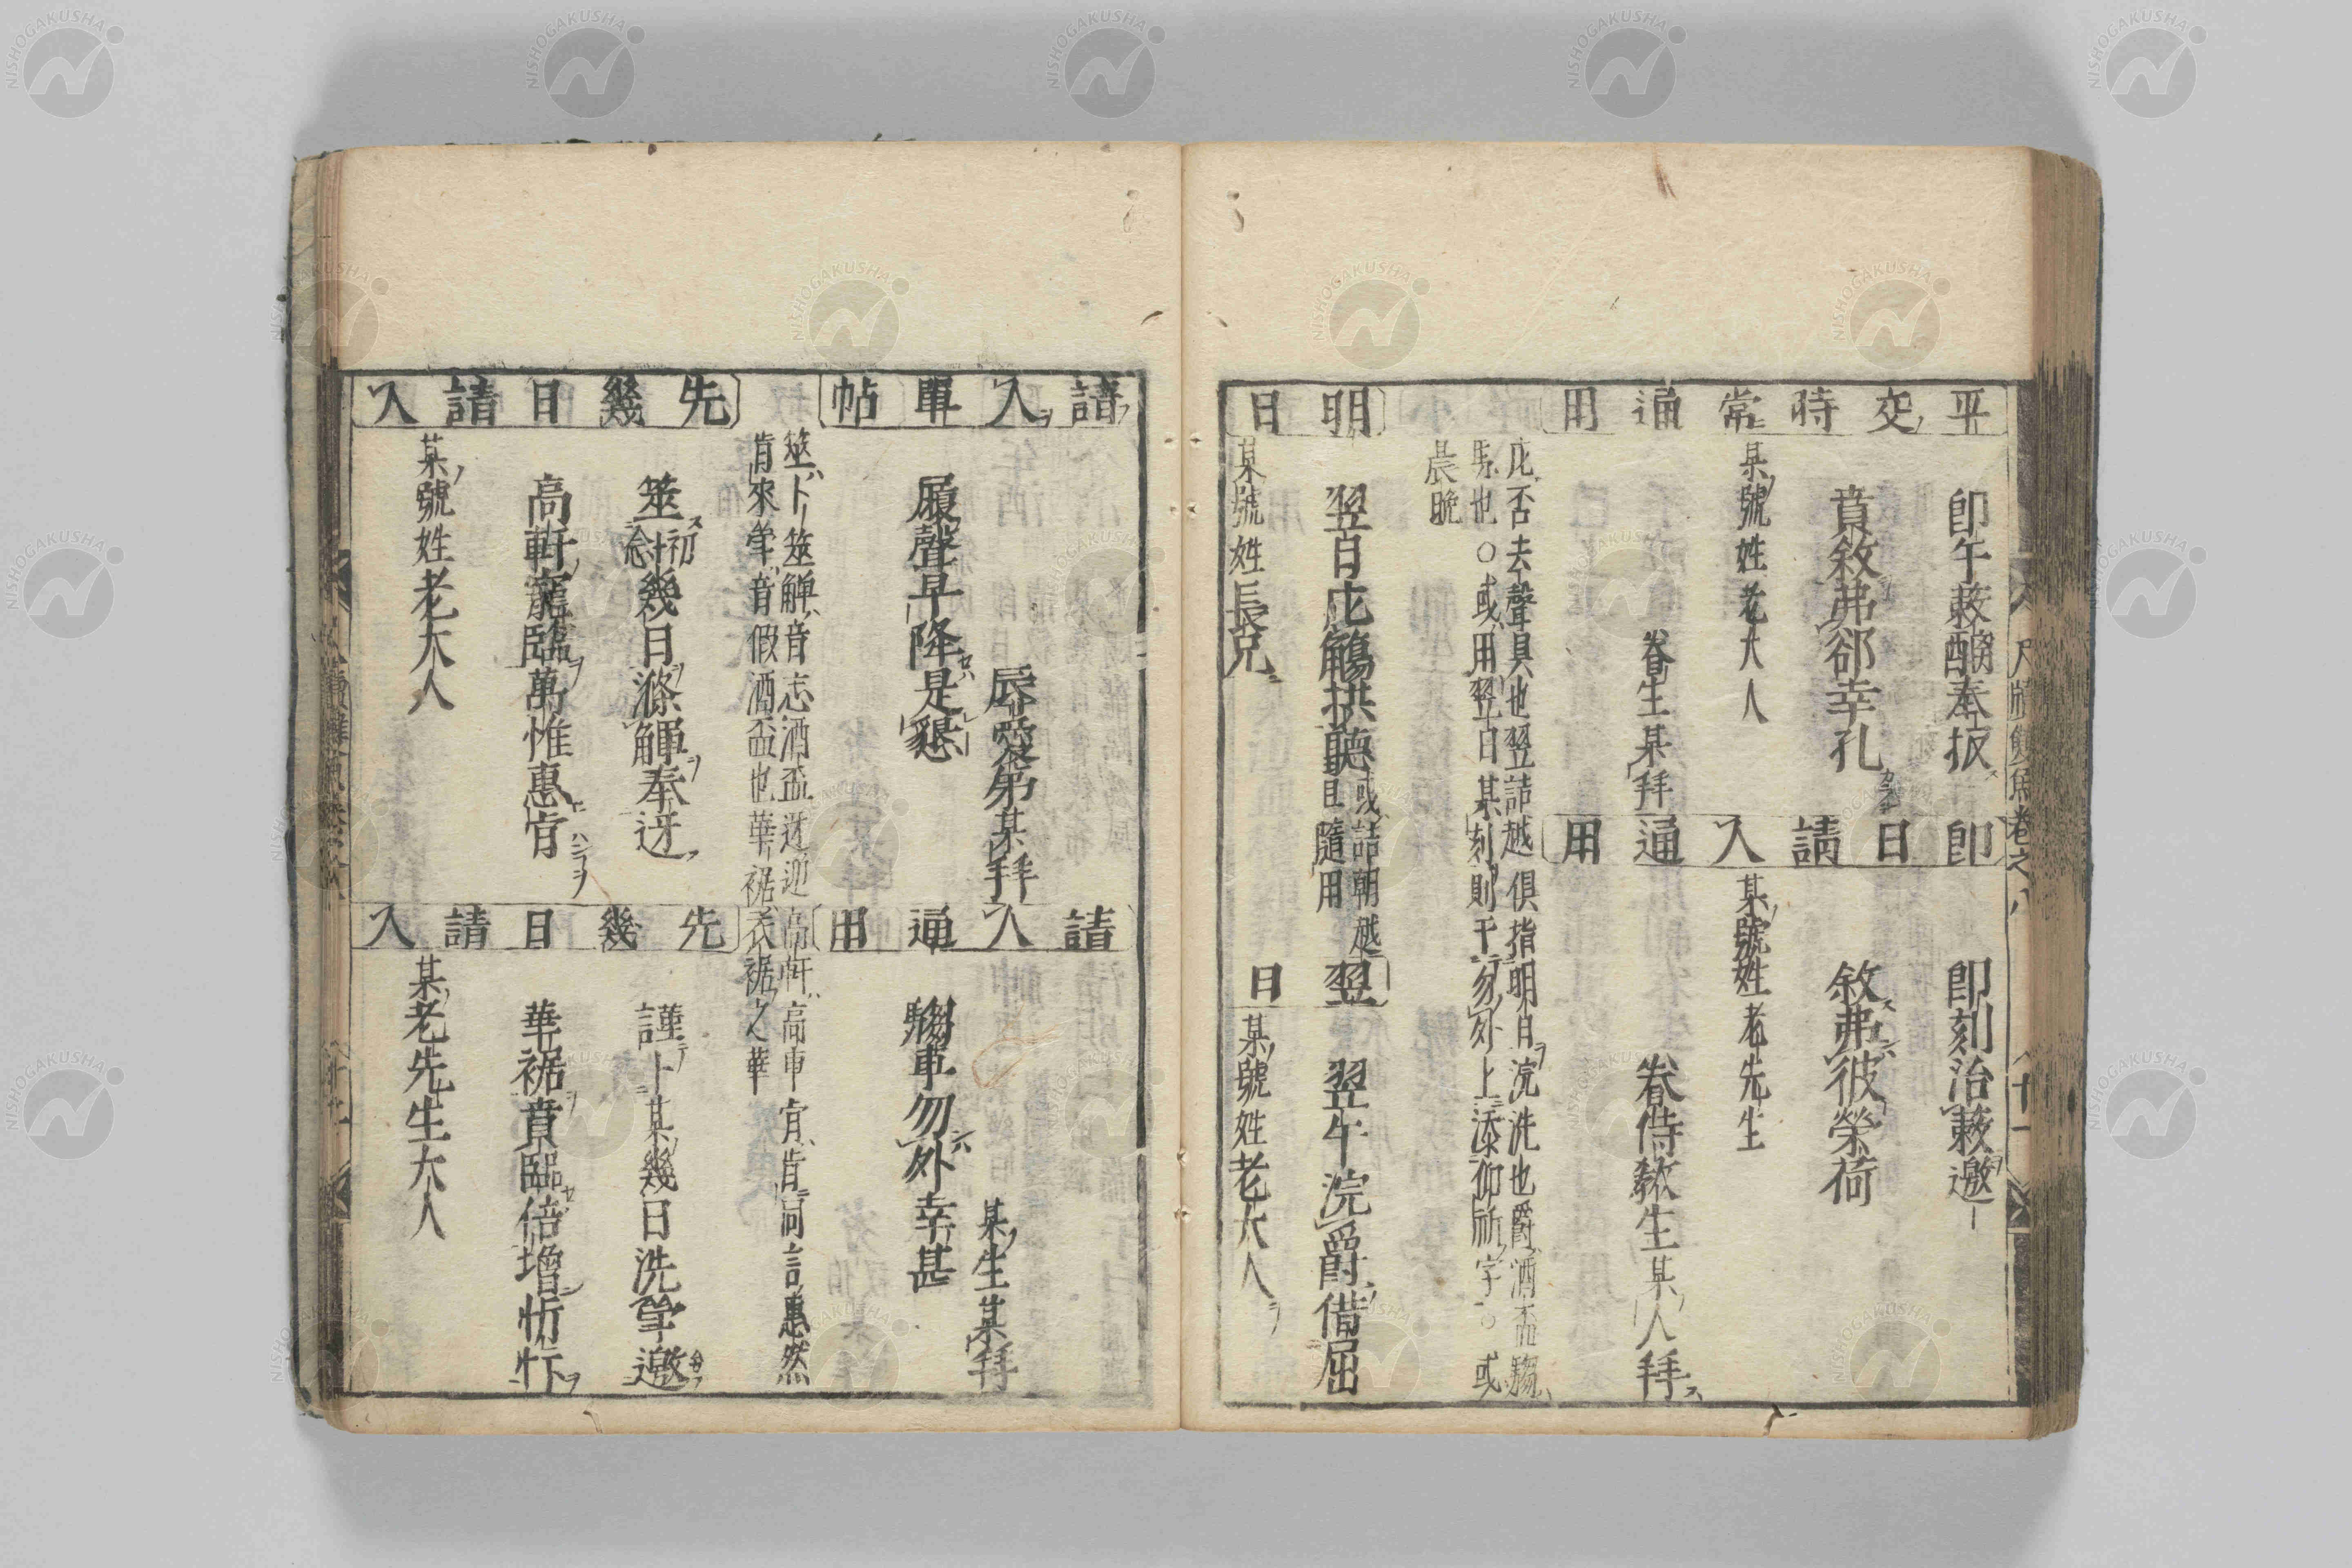 平交時常通用
即午蔌醑奉扳
賁敘弗郤幸孔
某號姓老大人
眷生某拜
即日請人通用
即刻治蔌邀
敘弗彼榮荷
某號姓老先生
眷侍教生某人拜
庀否去聲具也翌詰越俱指明日浣洗也爵酒盃騶
馬也○或用翌日某刻則干勿外上添仰祈字○或
晨晚
明日
翌日庀觴拱聽或詰朝越且隨用
某號姓長兄
翌日
翌午浣爵借屈
某號姓老大人
請人單帖
辱愛弟某拜
履聲早降是懇
請人通用
某生某拜
騶車勿外幸甚
筮卜筮觶音志酒盃迓迎高軒高車肯肯同言惠然
肯來斝音假酒盃也華裾衣裾之華
先幾日請人
筮初念幾日滌觶奉迓
高軒寵臨萬惟惠肯
某號姓老大人
先幾日請人
謹卜某幾日洗斝邀
華裾賁臨倍增忻忭
某老先生大人
尺牘雙魚卷之八
十一
NISHOGAKUSHA